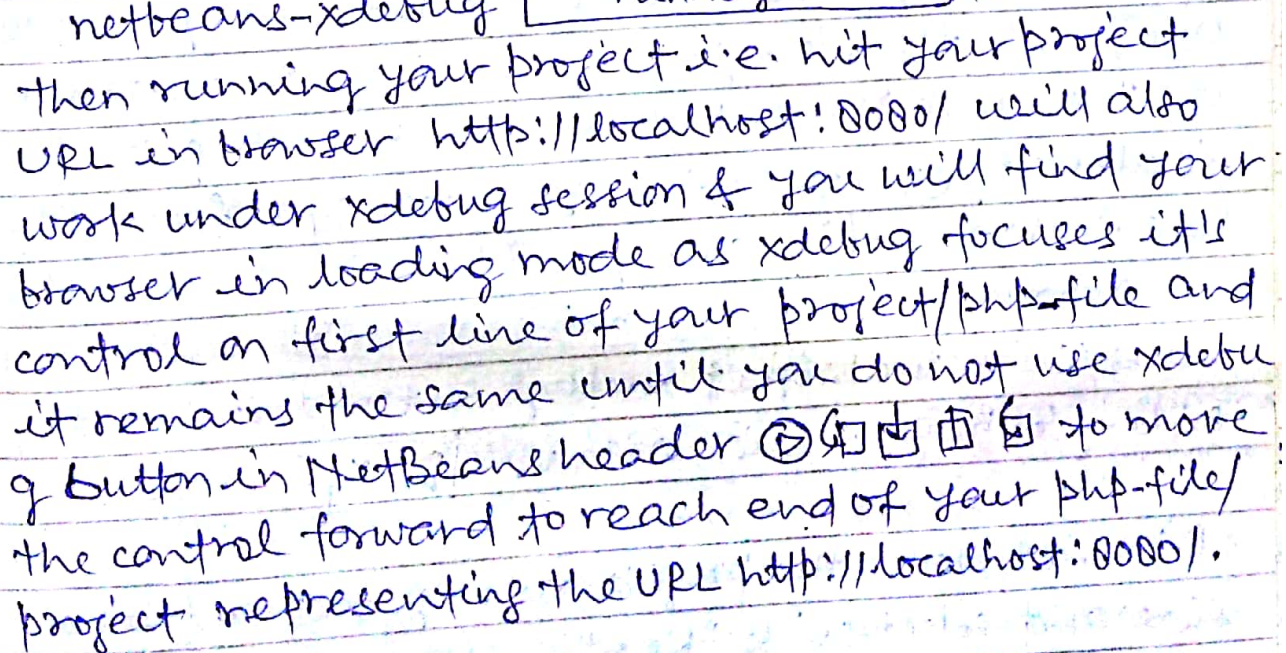 netbeans-xdebug
then running your project i.e. hit your project
URL in browser http://localhost:8080/ will also
work under xdebug session & you will find your
browser in loading mode as xdebug focuses it's
control on first line of your project/php-file and
it remains the same until you do not use xdebu
g button in NetBeans header to move
the control forward to reach end of your php-file/
project representing the URL http://localhost:8080/.